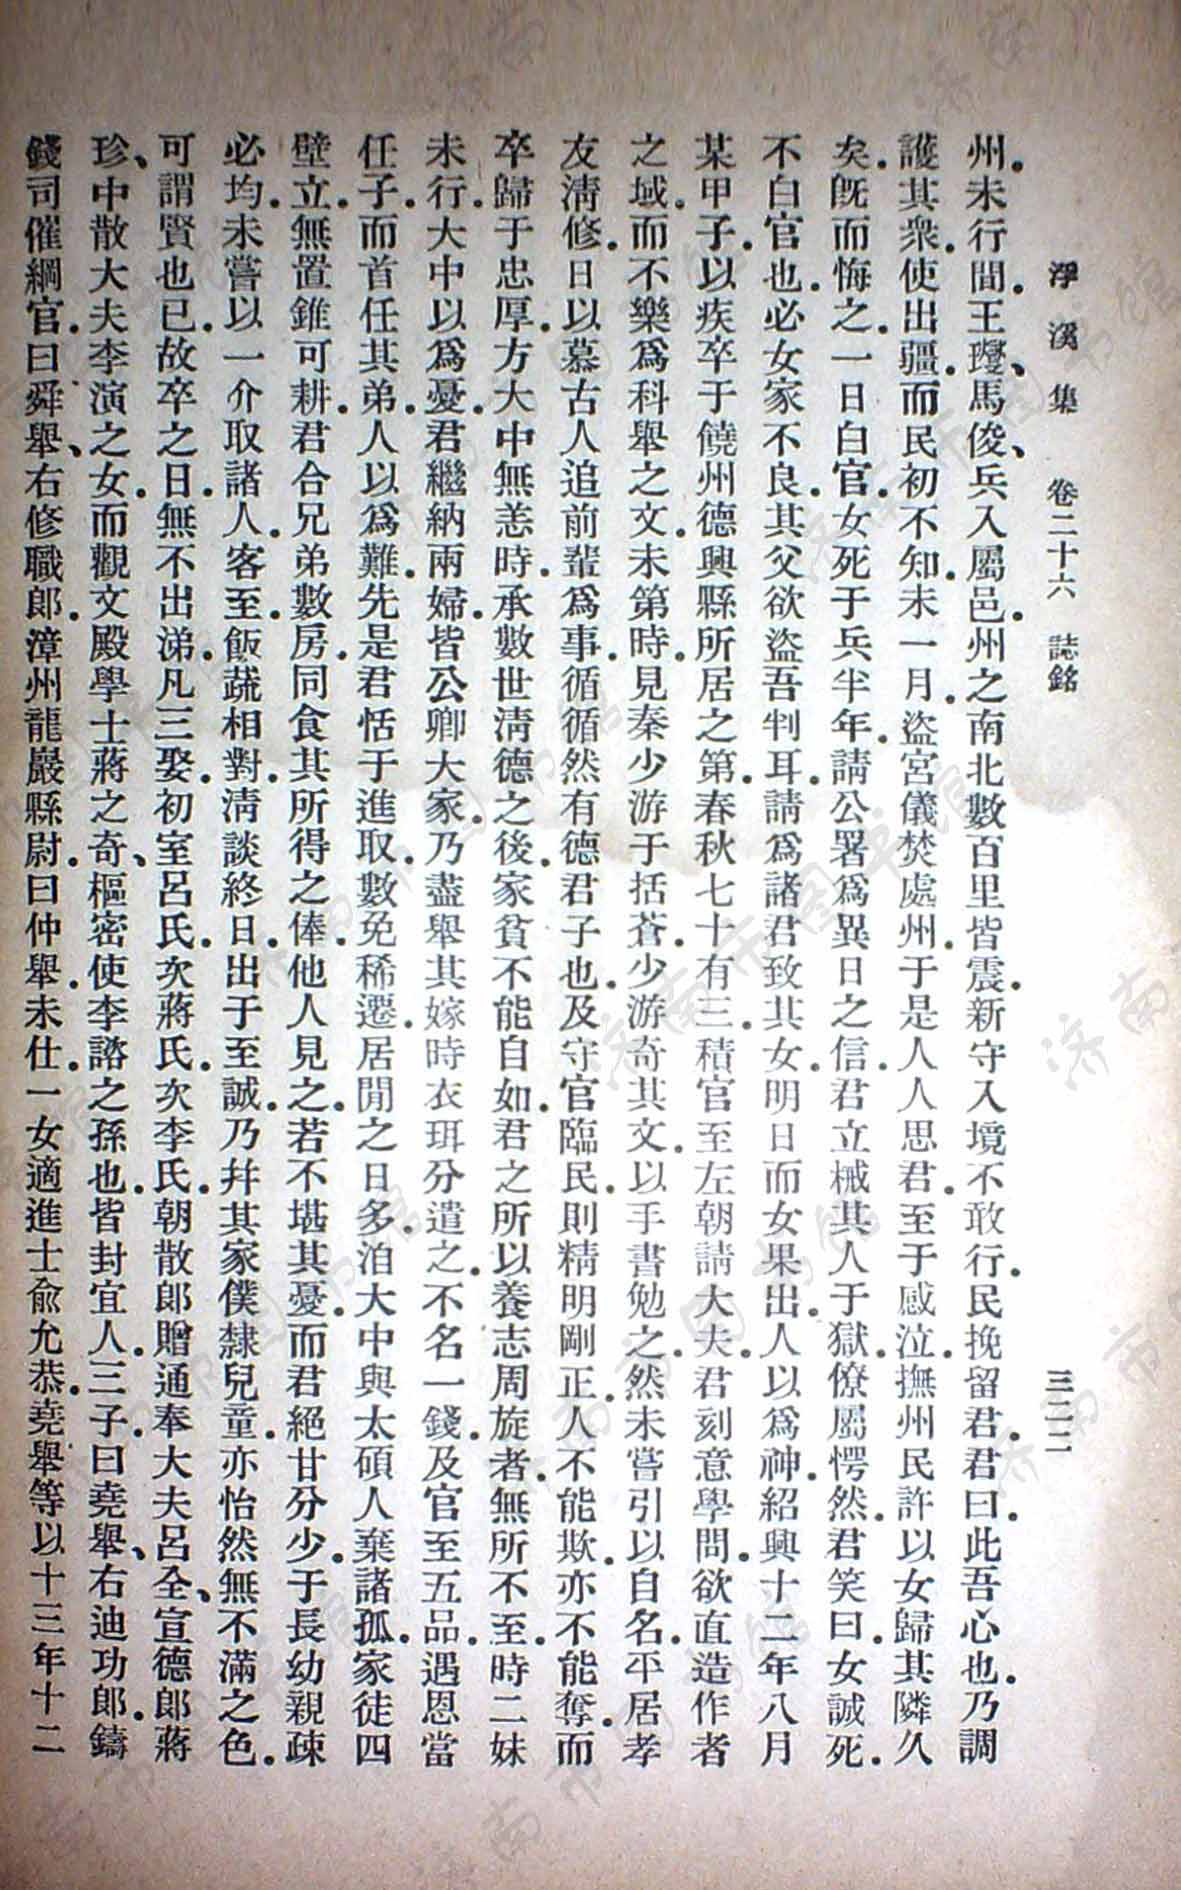 浮溪集 卷二十六 誌銘 三二二
州。未行間。王𤫉、馬俊、兵入屬邑。州之南北數百里皆震。新守入境不敢行。民挽留君。君曰。此吾心也。乃調
護其衆。使出疆。而民初不知。未一月。盜宮儀焚處州。于是人人思君。至于感泣。撫州民許以女歸其隣久
矣。旣而悔之。一日白官。女死于兵半年。請公署爲異日之信。君立械其人于獄。僚屬愕然。君笑曰。女誠死。
不白官也。必女家不良。其父欲盜吾判耳。請爲諸君致其女。明日而女果出。人以爲神。紹興十二年八月
某甲子。以疾卒于饒州德興縣所居之第。春秋七十有三。積官至左朝請大夫。君刻意學問。欲直造作者
之域。而不樂爲科舉之文。未第時。見秦少游于括蒼。少游奇其文。以手書勉之。然未嘗引以自名。平居孝
友淸修。日以慕古人追前輩爲事。循循然有德君子也。及守官臨民。則精明剛正。人不能欺。亦不能奪。而
卒歸于忠厚。方大中無恙時。承數世淸德之後。家貧不能自如。君之所以養志周旋者。無所不至。時二妹
未行。大中以爲憂。君繼納兩婦。皆公卿大家。乃盡舉其嫁時衣珥分遣之。不名一錢。及官至五品。遇恩當
任子。而首任其弟。人以爲難。先是君恬于進取。數免稀遷。居閒之日多。洎大中與太碩人棄諸孤。家徒四
壁立。無置錐可耕。君合兄弟數房。同食其所得之俸。他人見之。若不堪其憂。而君絕甘分少。于長幼親疎
必均。未嘗以一介取諸人。客至。飯蔬相對。淸談終日。出于至誠。乃幷其家僕隸兒童。亦怡然無不滿之色。
可謂賢也已。故卒之日。無不出涕。凡三娶。初室呂氏。次蔣氏。次李氏。朝散郎贈通奉大夫呂全、宣德郎蔣
珍、中散大夫李演之女。而觀文殿學士蔣之奇、樞密使李諮之孫也。皆封宜人。三子。曰堯舉、右迪功郎。鑄
錢司催綱官。曰舜舉、右修職郎。漳州龍巖縣尉。曰仲舉。未仕。一女適進士俞允恭。堯舉等以十三年十二